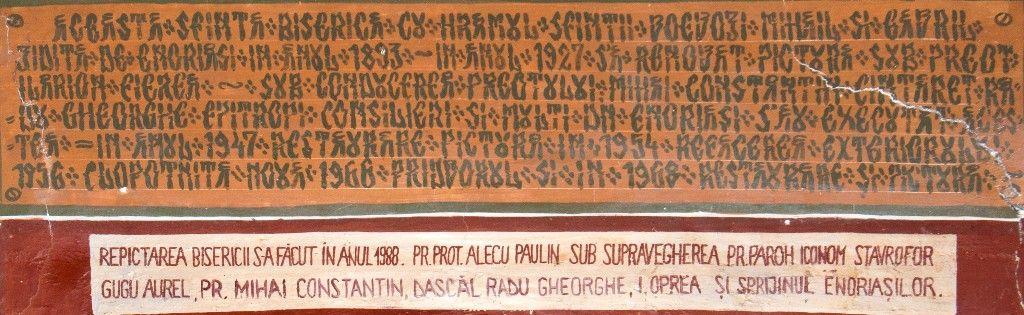 ACEASTĂ SFÎNTĂ BISERICĂ CU HRAMUL SFINȚII VOEVOZI MIHAIL SI GAVRIL
ZIDITĂ DE ENORIAȘI IN ANUL 1893 ~ IN ANUL 1927 SĂ RENOVAT PICTURA SUB PREOT
ILARION SUB CONDUCEREA PREOTULUI MIHAI CONSTANTIN CINTĂREȚ RA-
DU GHEORGHE EPITROPI CONSILIERI SI MULTI DN ENORIAȘI S'AU EXECUTAT
= IN ANUL 1947 RESTAURARE PICTURA IN 1954 REFACEREA EXTERIORULUI
1956 CLOPOTNIȚĂ NOUĂ 1966 PRIDVORUL SI IN 1968 RESTAURARE SI PICTURĂ
REPICTAREA BISERICII S-A FĂCUT ÎN ANUL 1988. PR. PROT. ALECU PAULIN SUB SUPRAVEGHEREA PR. PAROH ICONOM STAVROFOR
GUGU AUREL, PR. MIHAI CONSTANTIN, DASCĂL RADU GHEORGHE, I. OPREA ȘI SPRIJINUL ENORIAȘILOR.